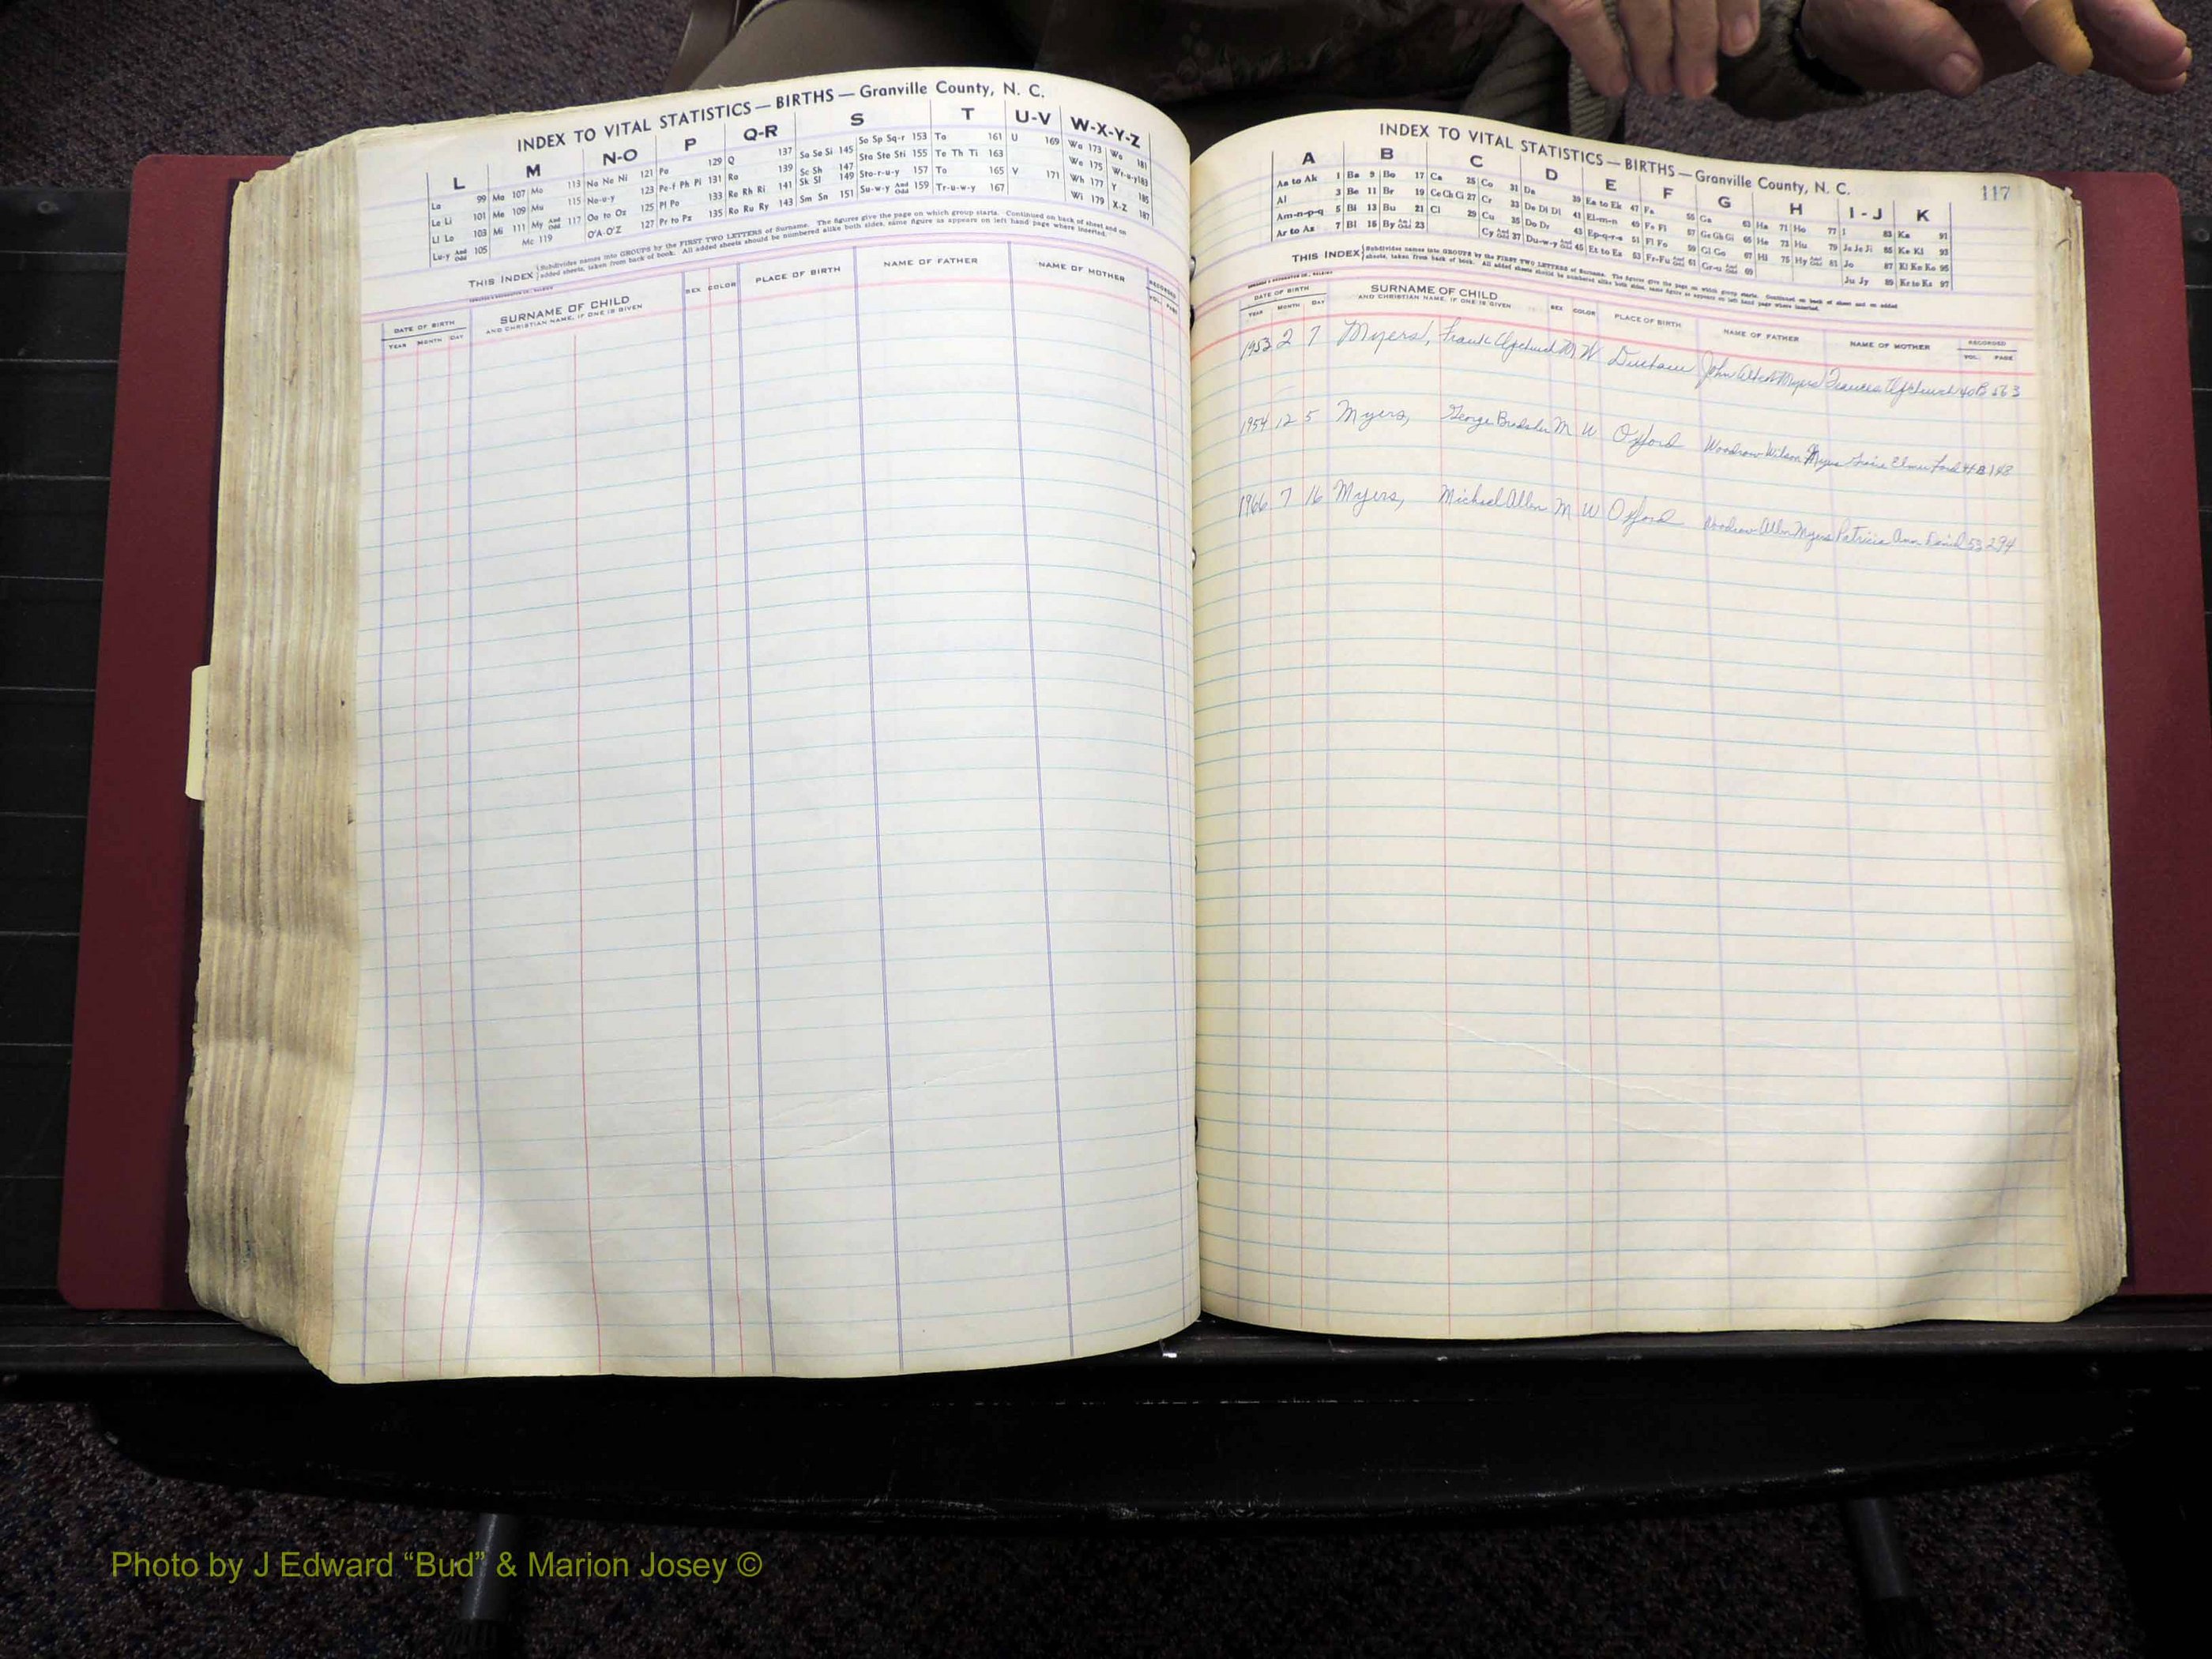 INDEX TO VITAL STATISTICS — BIRTHS — Granville County, N. C.
L M N-O P Q-R S T U-V W-X-Y-Z
La 99 Ma 107 Mo 113 Na Ne Ni 121 Pa 129 Q 137 Sa Se Si 145 So Sp Sq-r 153 Ta 161 U 169 Wa 173 Wo 181
Le Li 101 Me 109 Mu 115 No-u-y 123 Pe-f Ph Pi 131 Ra 139 Sc Sh 147 Sta Ste Sti 155 Te Th Ti 163 We 175 Wr-u-y 183
Ll Lo 103 Mi 111 My And Odd 117 Oa to Oz 125 Pl Po 133 Re Rh Ri 141 Sk Sl 149 Sto-r-u-y 157 To 165 V 171 Wh 177 Y 185
Lu-y And Odd 105 Mc 119 O'A-O'Z 127 Pr to Pz 135 Ro Ru Ry 143 Sm Sn 151 Su-w-y And Odd 159 Tr-u-w-y 167 Wi 179 X-Z 187
THIS INDEX Subdivides names into GROUPS by the FIRST TWO LETTERS of Surname. The figures give the page on which group starts. Continued on back of sheet and on
added sheets, taken from back of book. All added sheets should be numbered alike both sides, same figure as appears on left hand page where inserted.
DATE OF BIRTH SURNAME OF CHILD SEX COLOR PLACE OF BIRTH NAME OF FATHER NAME OF MOTHER RECORDED
YEAR MONTH DAY AND CHRISTIAN NAME, IF ONE IS GIVEN VOL. PAGE
INDEX TO VITAL STATISTICS — BIRTHS — Granville County, N. C.
117
A B C D E F G H I - J K
Aa to Ak 1 Ba 9 Bo 17 Ca 25 Co 31 Da 39 Ea to Ek 47 Fa 55 Ga 63 Ha 71 Ho 77 I 83 Ka 91
Al 3 Be 11 Br 19 Ce Ch Ci 27 Cr 33 De Di Dl 41 El-m-n 49 Fe Fi 57 Ge Gh Gi 65 He 73 Hu 79 Ja Je Ji 85 Ke Kl 93
Am-n-p-q 5 Bi 13 Bu 21 Cl 29 Cu 35 Do Dr 43 Ep-q-r-s 51 Fl Fo 59 Gl Go 67 Hi 75 Hy And Odd 81 Jo 87 Kl Kn Ko 95
Ar to Az 7 Bl 15 By And Odd 23 Cy And Odd 37 Du-w-y And Odd 45 Et to Ez 53 Fr-Fu And Odd 61 Gr-u And Odd 69 Ju Jy 89 Kr to Kz 97
THIS INDEX Subdivides names into GROUPS by the FIRST TWO LETTERS of Surname. The figures give the page on which group starts. Continued on back of sheet and on added
sheets, taken from back of book. All added sheets should be numbered alike both sides, same figure as appears on left hand page where inserted.
DATE OF BIRTH SURNAME OF CHILD SEX COLOR PLACE OF BIRTH NAME OF FATHER NAME OF MOTHER RECORDED
YEAR MONTH DAY AND CHRISTIAN NAME, IF ONE IS GIVEN VOL. PAGE
1953 2 7 Myers, Frank Upchurch M W Durham John Myers Frances Upchurch 40B 563
1954 12 5 Myers, George Bradsher M W Oxford Woodrow Wilson Myers Ford 41B 142
1966 7 16 Myers, Michael Allen M W Oxford Woodrow Allen Myers Patricia Ann 53 294
Photo by J Edward “Bud” & Marion Josey ©